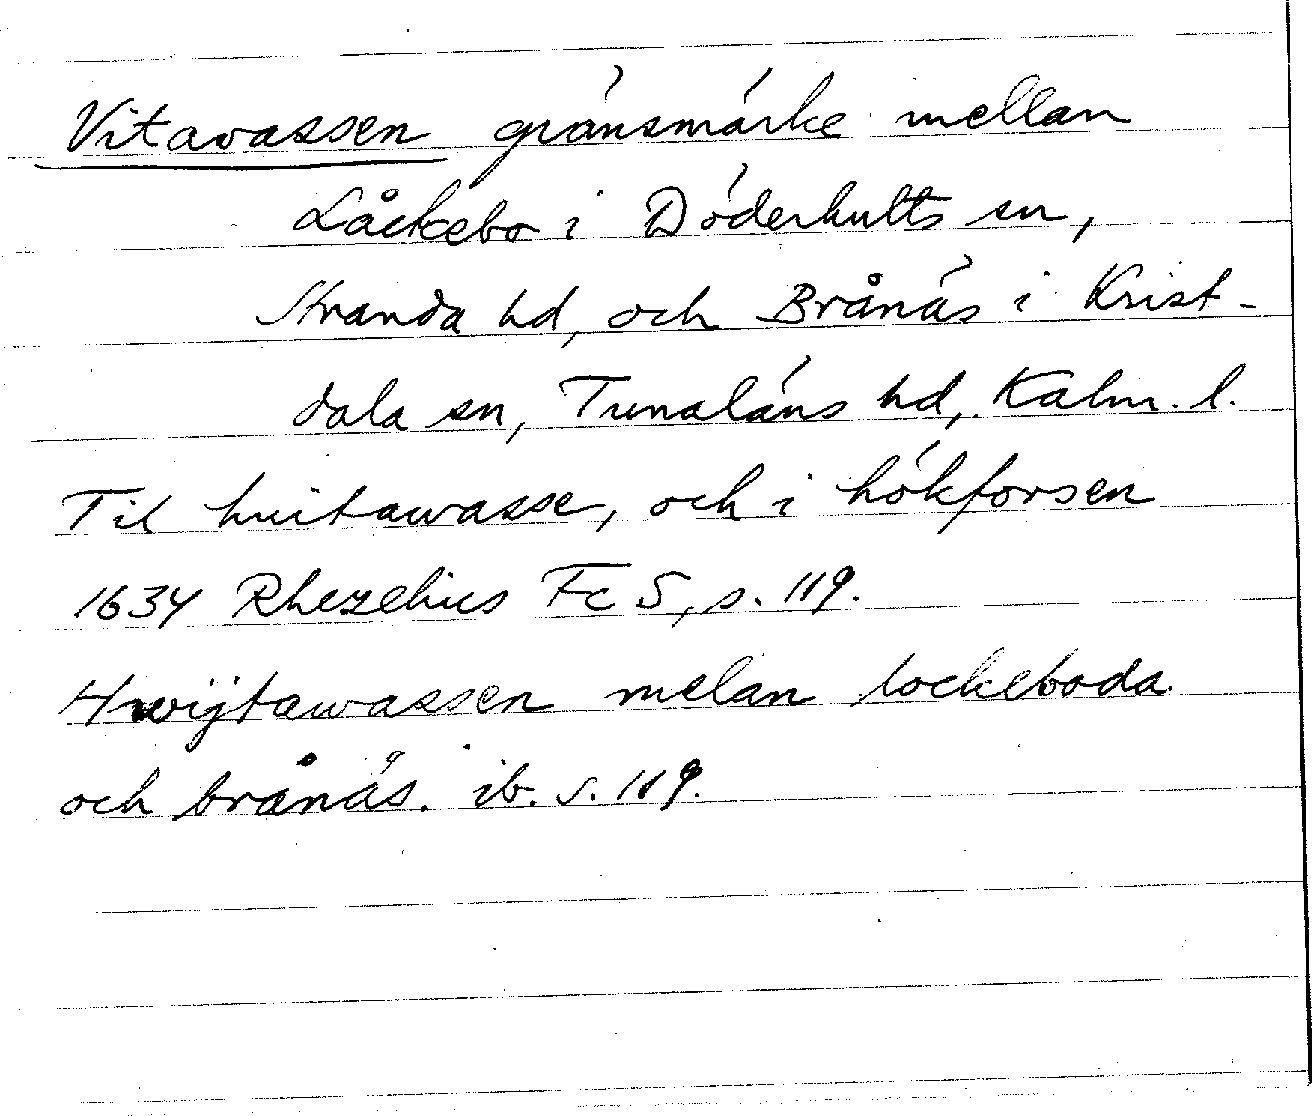 Vitavassen gränsmärke mellan
Låckebo i Döderhults sn,
Stranda hd, och Brånäs i Krist-
dala sn, Tunaläns hd, Kalm. l.
Til huitawasse, och i hökforsen
1634 Rhezelius Fc 5, s. 119.
Hwijtawassen melan lockeboda
och brånäs. ib. s. 119.